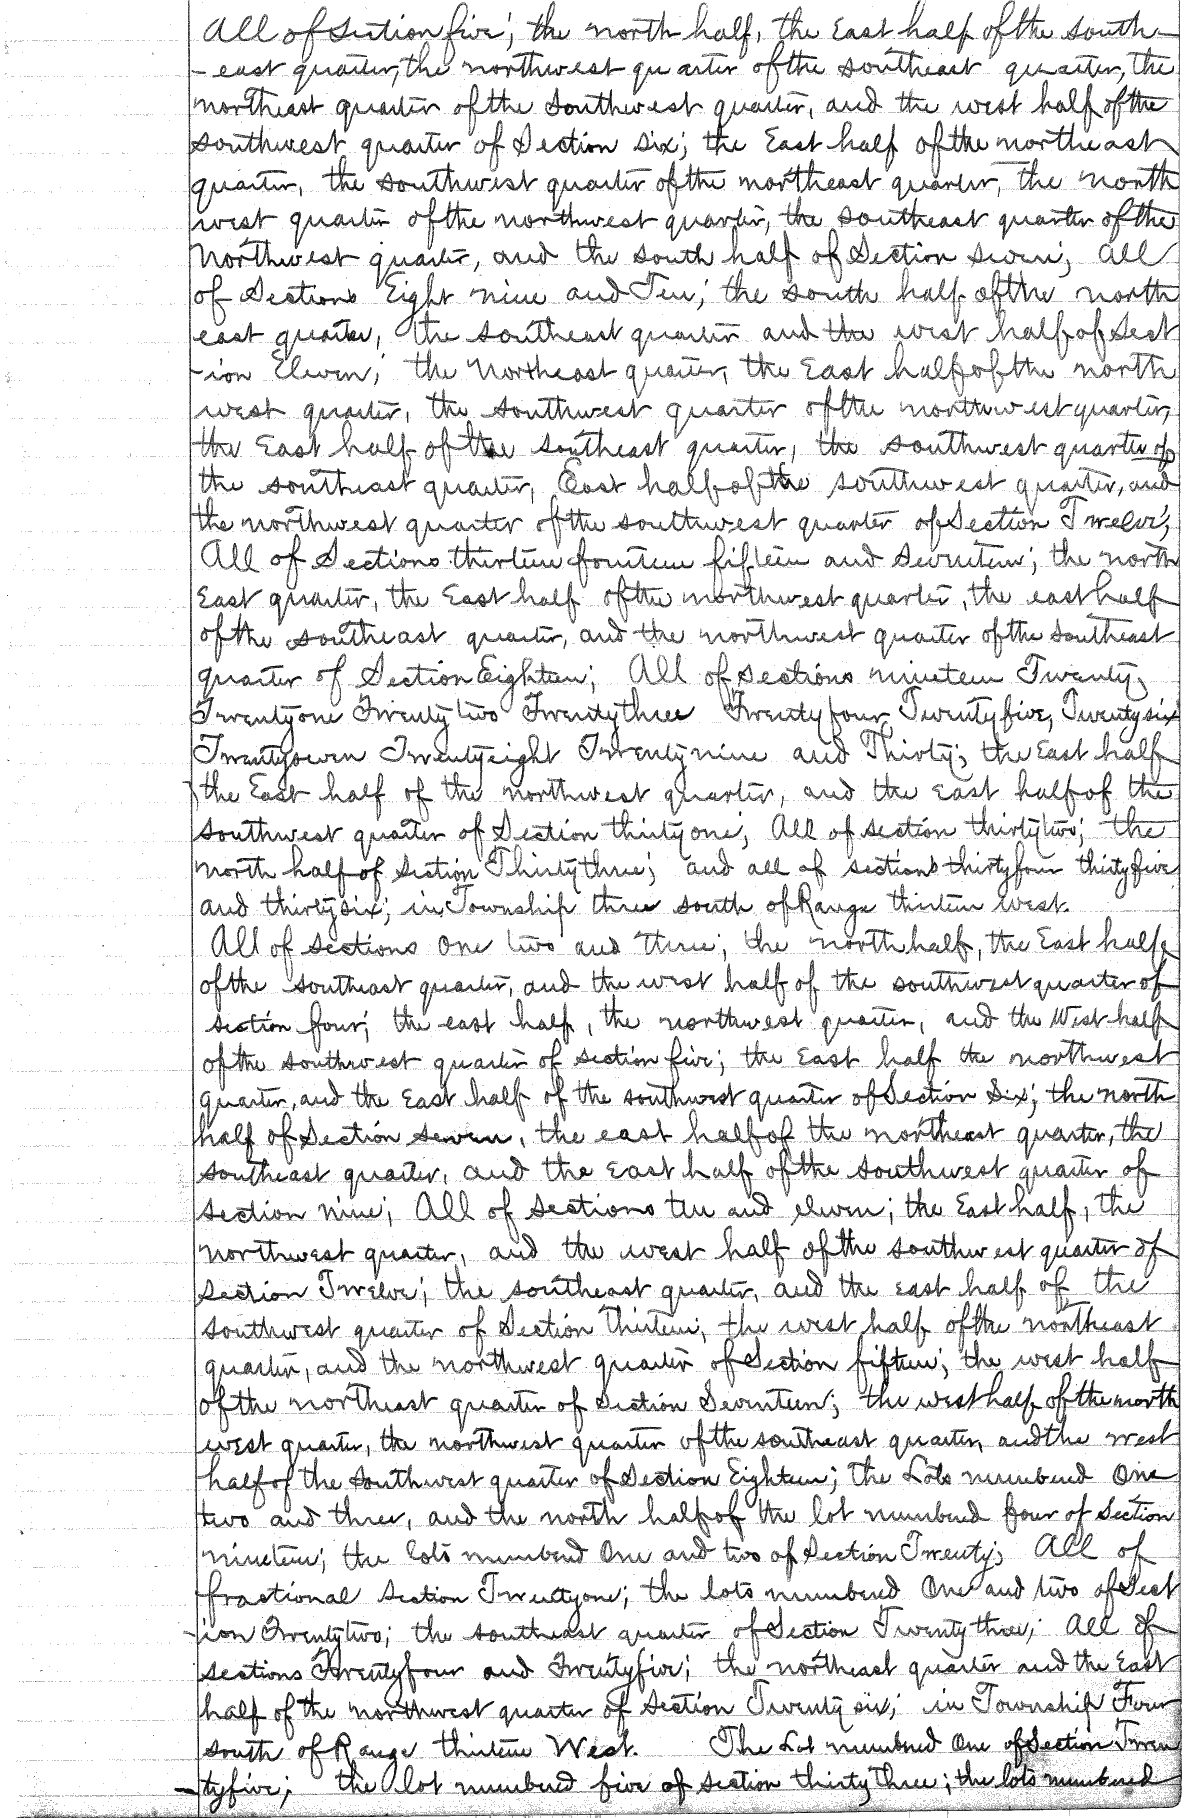 All of Section five; the north half, the East half of the south-
-east quarter, the northwest quarter of the southeast quarter, the
northeast quarter of the Southwest quarter, and the west half of the
southwest quarter of Section six; the East half of the northeast
quarter, the southwest quarter of the northeast quarter, the north
west quarter of the northwest quarter, the southeast quarter of the
Northwest quarter, and the south half of Section seven; All
of Sections Eight nine and Ten; the south half of the north
east quarter, the southeast quarter and the west half of Sect
-ion Eleven; the Northeast quarter, the East half of the north
west quarter, the southwest quarter of the northwest quarter,
the East half of the southeast quarter, the southwest quarter of
the southeast quarter, East half of the southwest quarter, and
the northwest quarter of the southwest quarter of Section Twelve;
All of Sections thirteen fourteen fifteen and seventeen; the north
East quarter, the East half of the northwest quarter, the east half
of the southeast quarter, and the northwest quarter of the southeast
quarter of Section Eighteen; All of sections nineteen Twenty,
Twentyone Twentytwo Twentythree Twentyfour Twentyfive, Twentysix
Twentyseven Twentyeight Twentynine and Thirty; the East half
the East half of the northwest quarter, and the East half of the
southwest quarter of Section thirtyone; All of section thirtytwo; the
north half of Section Thirtythree; and all of sections thirtyfour thirtyfive
and thirtysix; in Township three south of Range thirteen west.
All of sections One two and three; the north half, the East half
of the southeast quarter, and the west half of the southwest quarter of
section four; the east half, the northwest quarter, and the West half
of the southwest quarter of section five; the East half the northwest
quarter, and the East half of the southwest quarter of Section Six; the north
half of Section seven, the east half of the northeast quarter, the
southeast quarter, and the East half of the southwest quarter of
section nine; All of sections ten and eleven; the East half, the
northwest quarter, and the west half of the southwest quarter of
Section Twelve; the southeast quarter, and the east half of the
southwest quarter of Section Thirteen; the west half of the northeast
quarter, and the northwest quarter of Section fifteen; the west half
of the northeast quarter of Section Seventeen; the west half of the north
west quarter, the northwest quarter of the southeast quarter, and the west
half of the southwest quarter of Section Eighteen; the Lots numbered One
two and three, and the north half of the lot numbered four of Section
nineteen; the lots numbered One and two of Section Twenty; All of
fractional section Twentyone; the lots numbered One and two of Sect
-ion Twentytwo; the southeast quarter of Section Twentythree; All of
sections Twentyfour and Twentyfive; the northeast quarter and the East
half of the northwest quarter of Section Twentysix; in Township Four
south of Range thirteen West. The Lot numbered One of Section Twen
-tyfive; the lot numbered five of section thirty three; the lots numbered